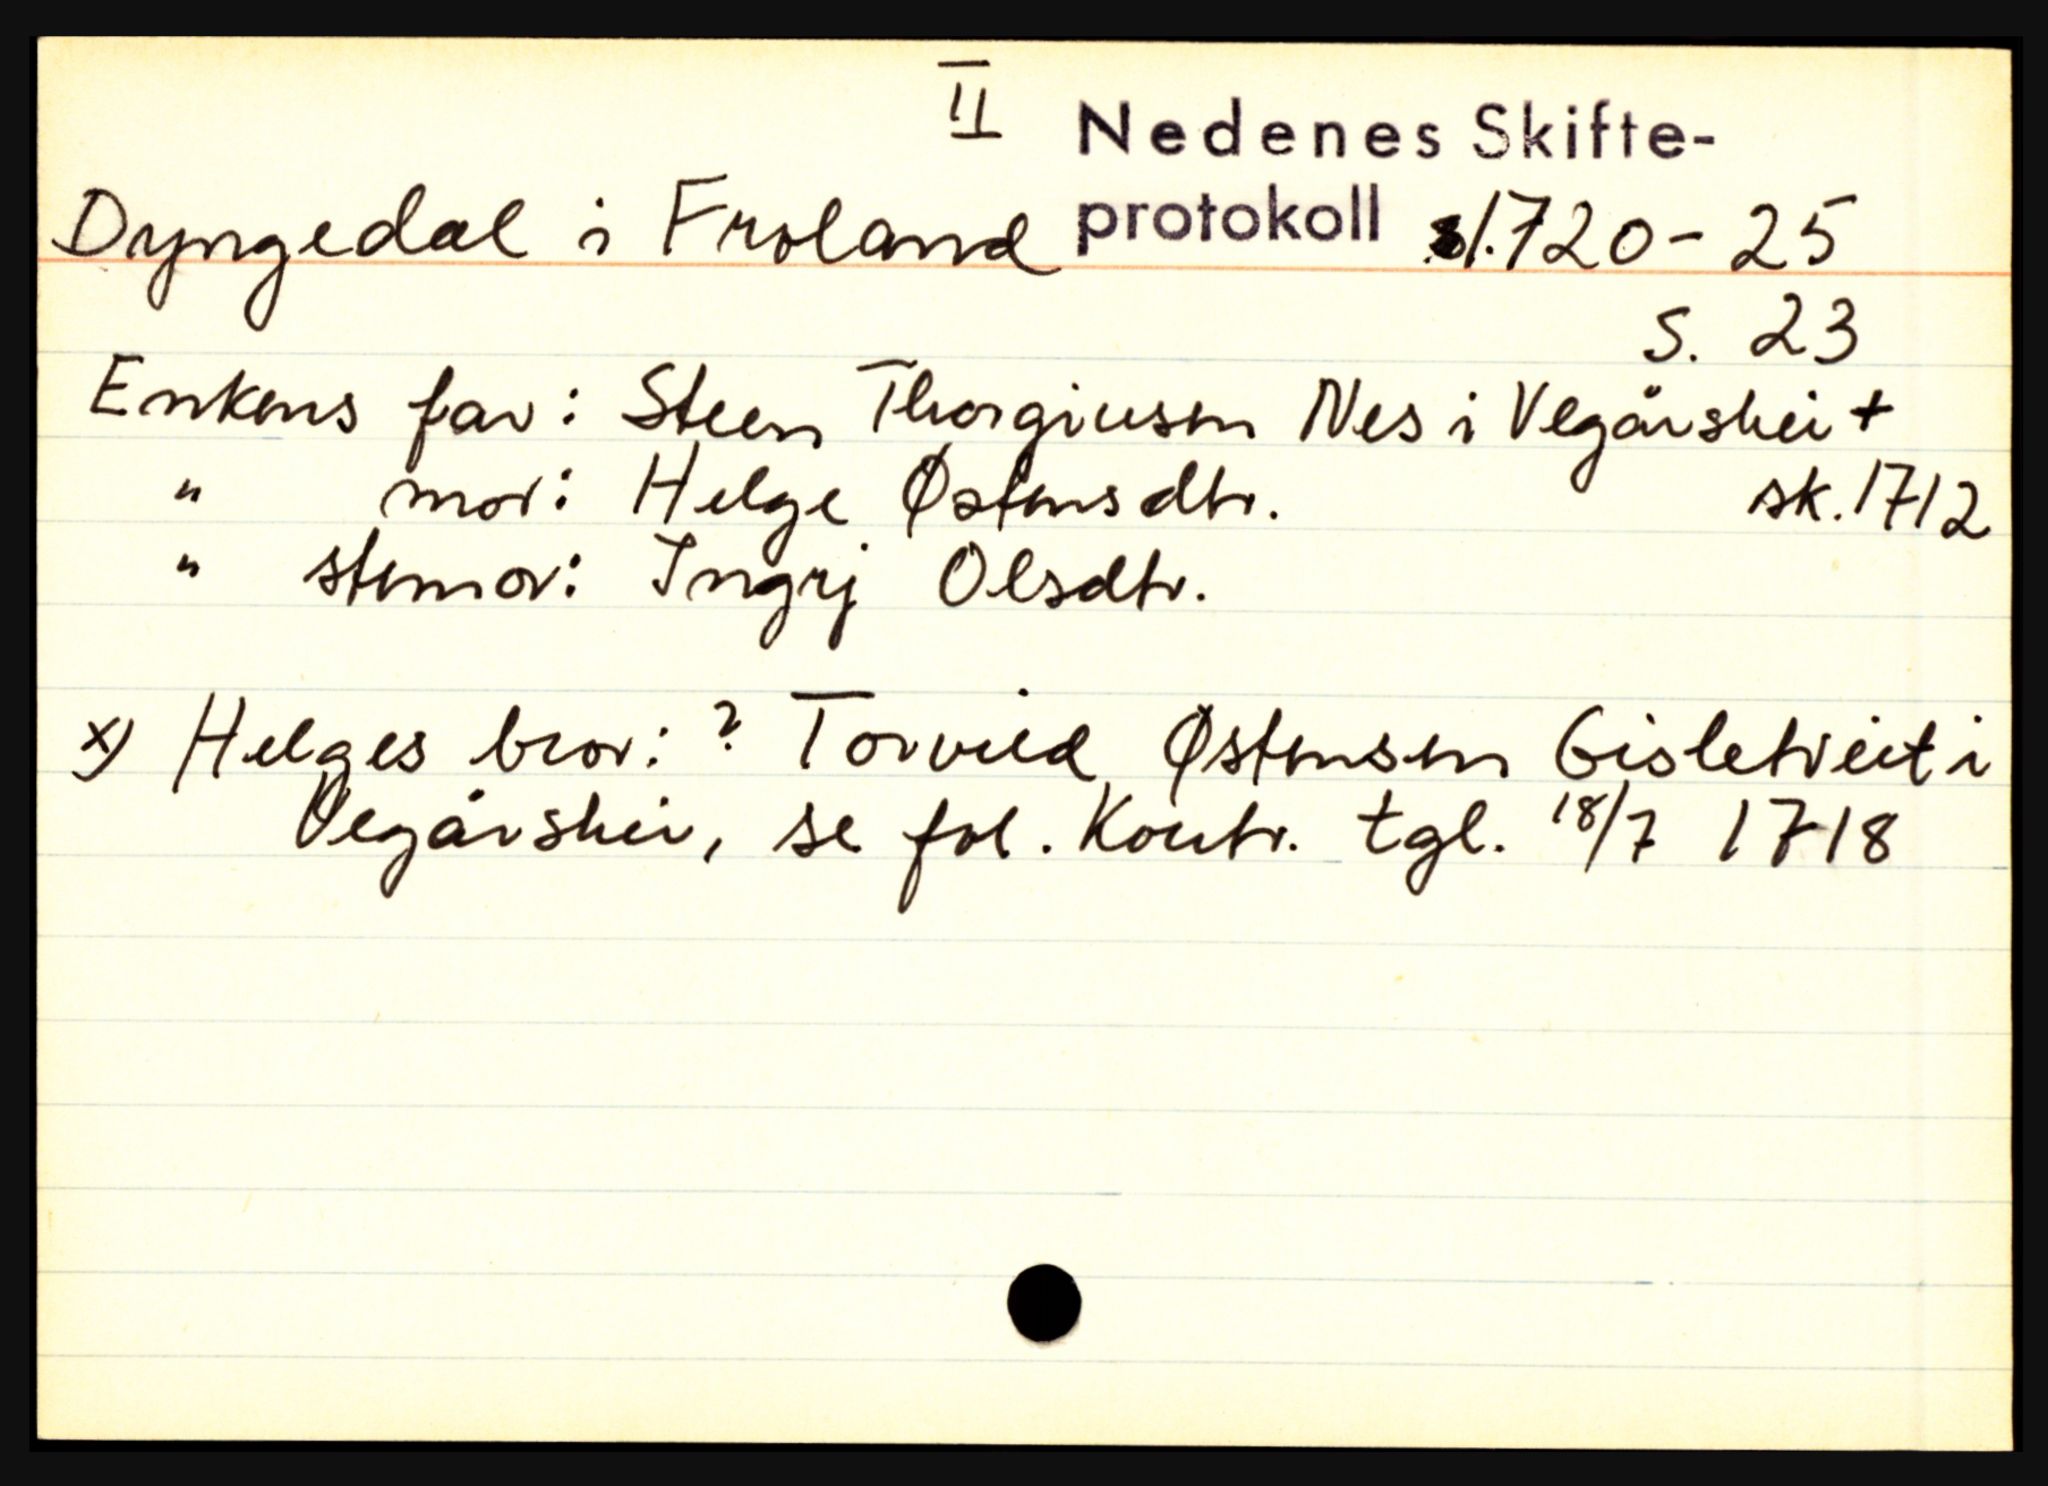 II
Nedenes Skifte-
Dyngedal i Froland protokoll 1.720-25
S. 23
Enkens far: Steen Thorgiusen Nes i Vegårshei +
" mor: Helge Østensdtr. sk. 1712
" stemor: Ingrj Olsdtr.
x) Helges bror: ? Torvild Østensen Gisletveit i
Vegårshei, se fol. Kontr. tgl. 18/7 1718